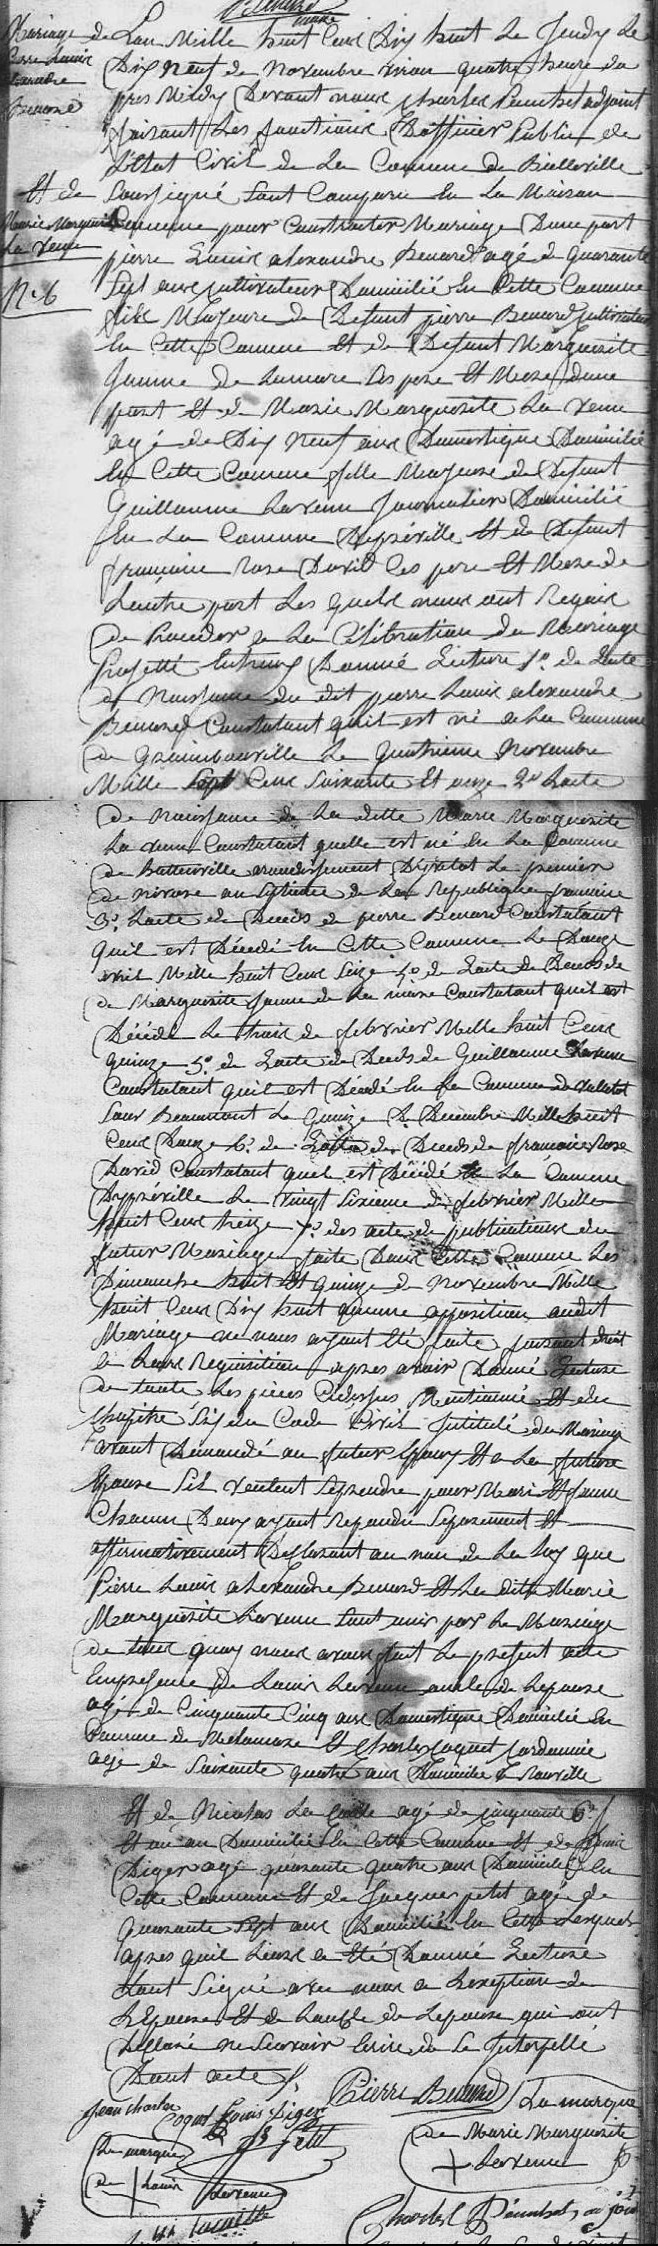 Mariage de
Pierre Louis
alexandre
Benard
Et de
Marie Marguerite
La venu
N° 6
L'an Mille huit Cent Dix huit Le Jeudy Le
Dix Neuf de Novembre quatre heure du
pres Midy Devant nous Charles adjoint
faisant Les fonctions D'officier Public de
L'Etat Civil de La Commune de Belleville
Soussigné Sont Comparu En La Maison
Commune pour Contracter Mariage Dune part
pierre Louis alexandre Benard agé de quarante
Sept ans Cultivateur Domicilié En Cette Commune
fils Majeure de Defunt pierre Benard Cultivateur
En Cette Commune Et de Defunt Marguerite
famme de Lamare Ses pere Et Mere dune
part Et de Marie Marguerite La venu
agé de Dix Neuf ans Domestique Domicilié
En Cette Commune fille Majeure de Defunt
Guillaume Lavenu Journalier Domicilié
En La Commune Et de Defunt
francoise Rose David Ses pere Et Mere de
Lautre part Les quels nous ont Requis
de Proceder a La Célébration du Mariage
Projetté Entreux Donné Lecture 1° de Lacte
de Naissance du dit pierre Louis alexandre
Benard Constatant quil est né a La Commune
de Grainbouville Le quatrieme Novembre
Mille Sept Cent Soixante Et onze 2° Lacte
de Naissance de La ditte Marie Marguerite
La venu Constatant quelle est né En La Commune
de arrondissement Dyvetot Le premier
de nivose an Septieme de La Republique francaise
3° Lacte de Deces de pierre Benard Constatant
quil est Décedé En Cette Commune Le Douze
avril Mille huit Cent Seize 4° de Lacte de Deces de
de Marguerite famme de La mare Constatant quil est
Décéde Le trois de febvrier Mille huit Cent
quinze 5° de Lacte de Deces de Guillaume Lavenu
Constatant quil est Décédé En La Commune de
Sour Beaumont Le quinze de Decembre Mille huit
Cent Douze 6° de Lacte de Deces de francoise Rose
David Constatant quel est Décédé a La Commune
Le vingt Sixieme de febvrier Mille
huit Cent treize 7° des acte de publications du
futur Mariage faite Dans Cette Commune Les
Dimanche huit Et quinze de Novembre Mille
huit Cent Dix huit aucune opposition audit
Mariage ne nous ayant Eté faite faisant droit
a Leur Requisition apres avoir Donné Lecture
de toute Les pieces Cidessus Mentionné Et du
Chapitre Six du Code Civil Intitulé du Mariage
avons Demandé au futur Epoux Et a La future
Epouse Sil veulent Seprendre pour Mari Et famme
Chacun Deux ayant Repondu Separement Et
affirmativement Declarant au nom de La Loy que
Pierre Louis alexandre Benard Et La ditte Marie
Marguerite Lavenu Sont unis par Le Mariage
de tout quoy nous avons fait Le present acte
Enpresence de Louis Lavenu oncle de Lepouse
agé de Cinquante Cinq ans Domestique Domicilié En
Commune de Melamare Et Charles Coquet Cordonnier
age de Soixante quatre ans Domicilié a
Et de Nicolas La agé de Cinquante
Et un an Domicilié En Cette Commune Et de Louis
Diger agé quarante quatre ans Domicilié En
Cette Commune Et de Jacques petit agé de
quarante Sept ans Domicilié En Cette Lesquels
apres quil Leure a Eté Donné Lecture
Sont Signé avec nous a Lexeption de
LEpouse Et de Loncle de Lepouse qui ont
Déclaré ne Scavoir Ecrire de Ce Interpellé
Dont acte
Pierre Benard
La marque
de Marie Marguerite
Lavenu
Jean Charles
Coquet Louis Diger
Petit
La marque
de Louis
Lavenu
Charles